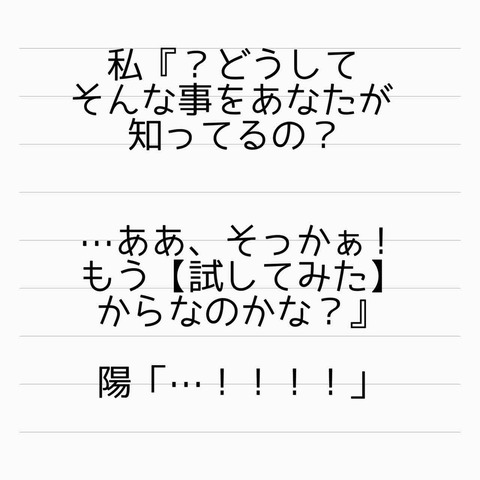 私『？どうして
そんな事をあなたが
知ってるの？
…ああ、そっかぁ！
もう【試してみた】
からなのかな？』
陽「…！！！！」